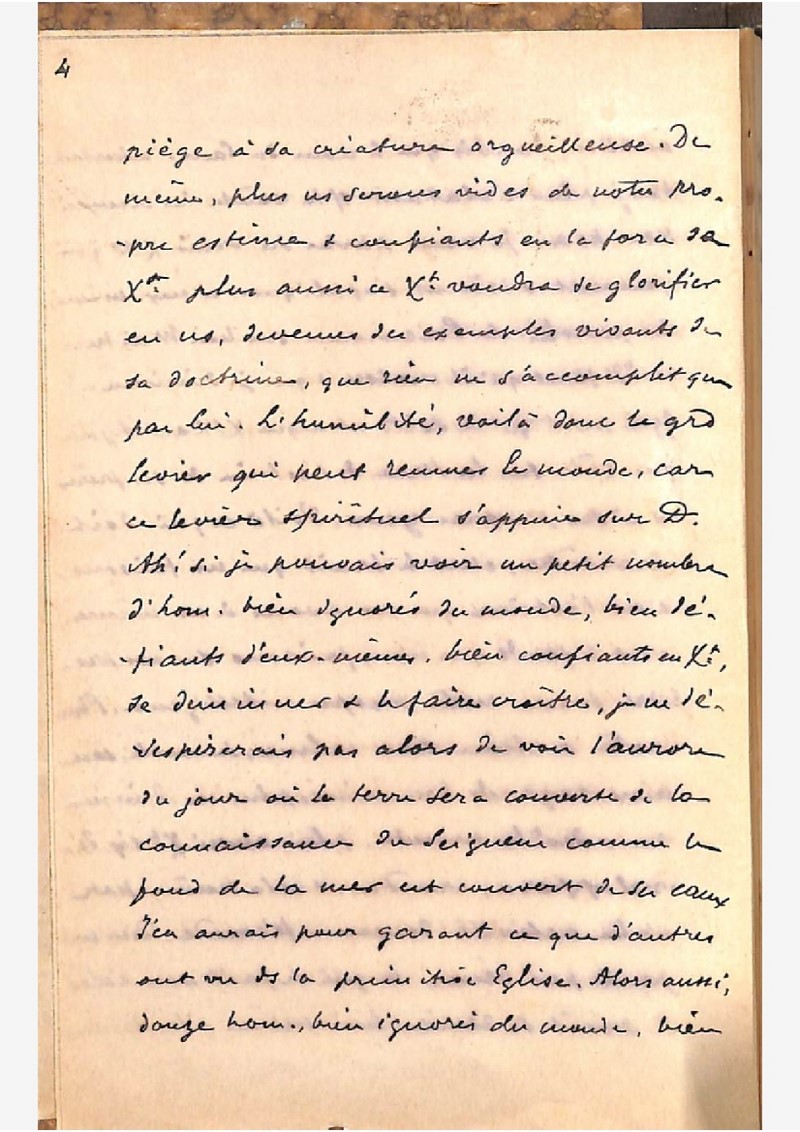 4
piège à sa créature orgueilleuse. De
même, plus ns serons vides de notre pro-
-pre estime & confiants en la force de
Xst plus aussi ce Xst voudra se glorifier
en ns, devenus des exemples vivants de
sa doctrine, que rien ne s'accomplit que
par lui. L'humilité, voilà donc le grd
levier qui peut remuer le monde, car
ce levier spirituel s'appuie sur D.
Ah! si je pouvais voir un petit nombre
d'hom. bien ignorés du monde, bien dé-
-fiants d'eux-mêmes. bien confiants en Xst,
se diminuer & le faire croître, je ne dé-
-sespérerais pas alors de voir l'aurore
du jour où la terre sera couverte de la
connaissance du Seigneur comme le
fond de la mer est couvert de ses eaux
J'en aurais pour garant ce que d'autres
ont vu ds la primitive Eglise. Alors aussi,
douze hom., bien ignorés du monde, bien